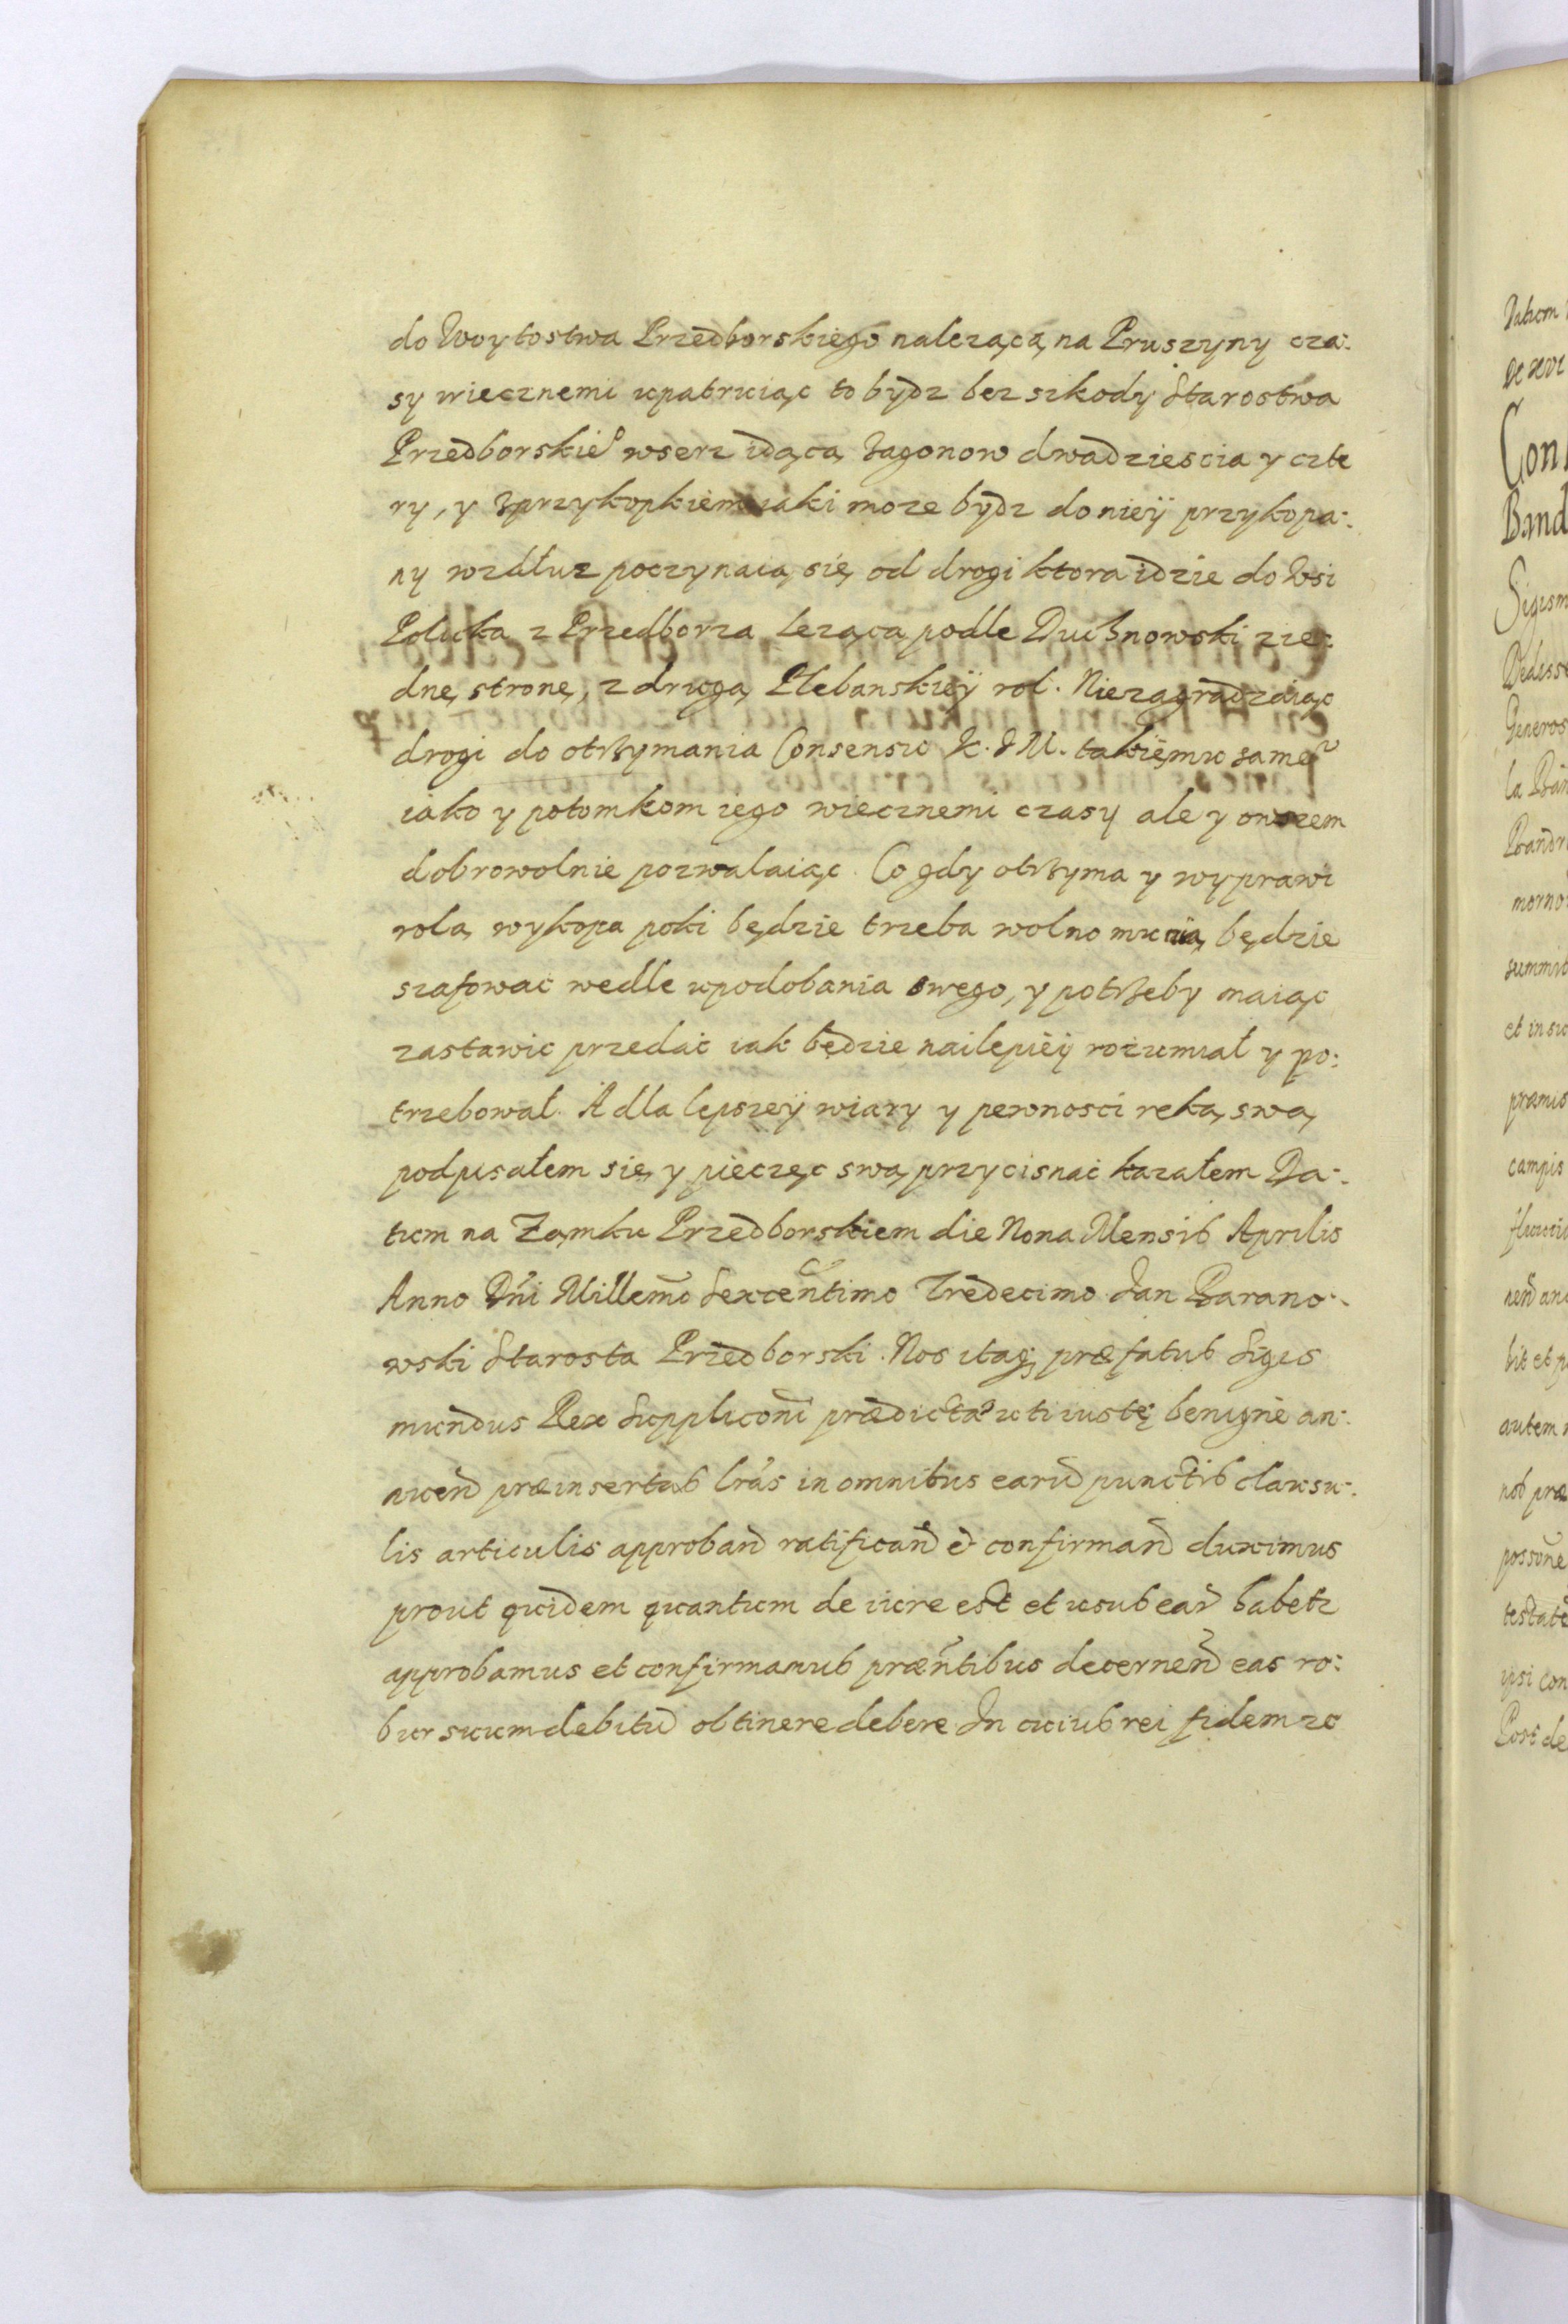 do Woytostwa Przedborskiego nalezącą na Pruszyny cza:
sy wiecznemi upatruiąc to bydz bez szkody Starostwa
Przedborskieº wserz idącą zagonow dwadziescia y czte
ry, y zprzykopkiem iaki moze bydz do nieÿ przykopa:
ny wzdłuz poczynaią się od drogi ktora idzie do Wsi
Policka z Przedborza lezącą podle Duchnowski zie:
dnę stronę, z drugą Plebanskieÿ rol. Niezagradzaiąc
drogi do otrzymania Consensu K. J M. tak iemu same͂
iako y potomkom iego wiecznemi czasy ale y owszem
dobrowolnie pozwalaiąc. Co gdy otrzyma y wyprawi
rolą wykopa poki będzie trzeba wolno mu nią będzie
szafowac wedle upodobania swego, y potrzeby maiąc
zastawic przedać iak będzie nailepieÿ rozumiał y po:
trzebował. A dla lepszeÿ wiary y pewnosci ręką swą
podpisałem się y pieczęc swą przycisnać kazałem Da:
tum na Zamku Przedborskiem die Nona Mensis Aprilis
Anno Dn̄i Millem̄o Sexcen̄timo Tredecimo Jan Barano:
wski Starosta Przedborski. Nos itaq; præfatus Sigis
mundus Rex Supplicōni prædictæ uti iustę benignè an:
nuen̄ præinsertas lr̄as in omnibus earū punctis clausu:
lis articulis approban̄ ratifican̄ et confirman̄ duximus
prout quidem quantum de iure est et usus ear̄ habetr
approbamus et confirmamus præn̄tibus decernen̄ eas ro:
bur suum debitū obtinere debere In cuius rei fidem
Datum
Con
Band
Sigism
Generos
summ
et in su
præmis
campis
autem
possōne
ipsi con
Post de